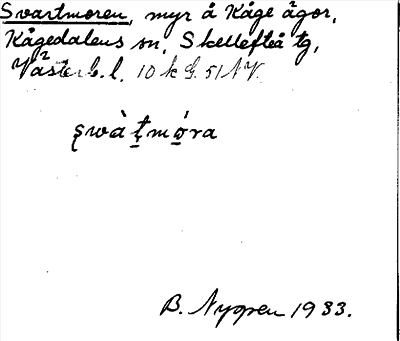 Svartmoren, myr å Kåge ägor,
Kågedalens sn, Skellefteå tg,
Västerb. l. 10 k G. 51 N V.
swàtmǿra
B. Nygren 1933.